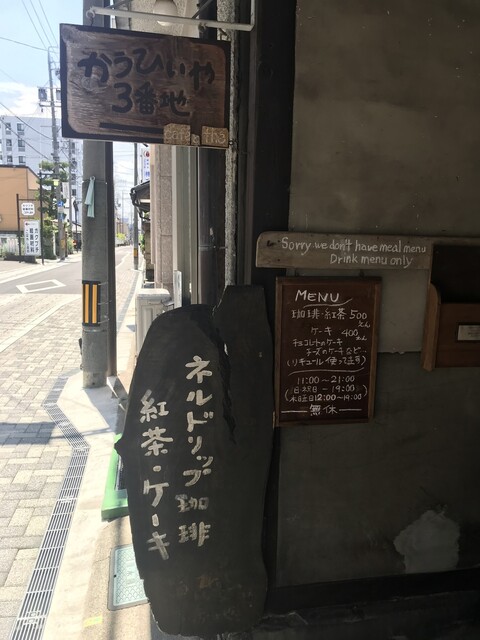 かうひいや
3番地
Sorry we don't have meal menu
Drink menu only
MENU
珈琲・紅茶 500
えん
ケーキ 400
えん
チョコレートのケーキ
チーズのケーキなど…
(リキュール使ってます)
11:00〜21:00
(日祝日 〜19:00)
(水曜日 12:00〜19:00)
無休
ネルドリップ珈琲
紅茶・ケーキ